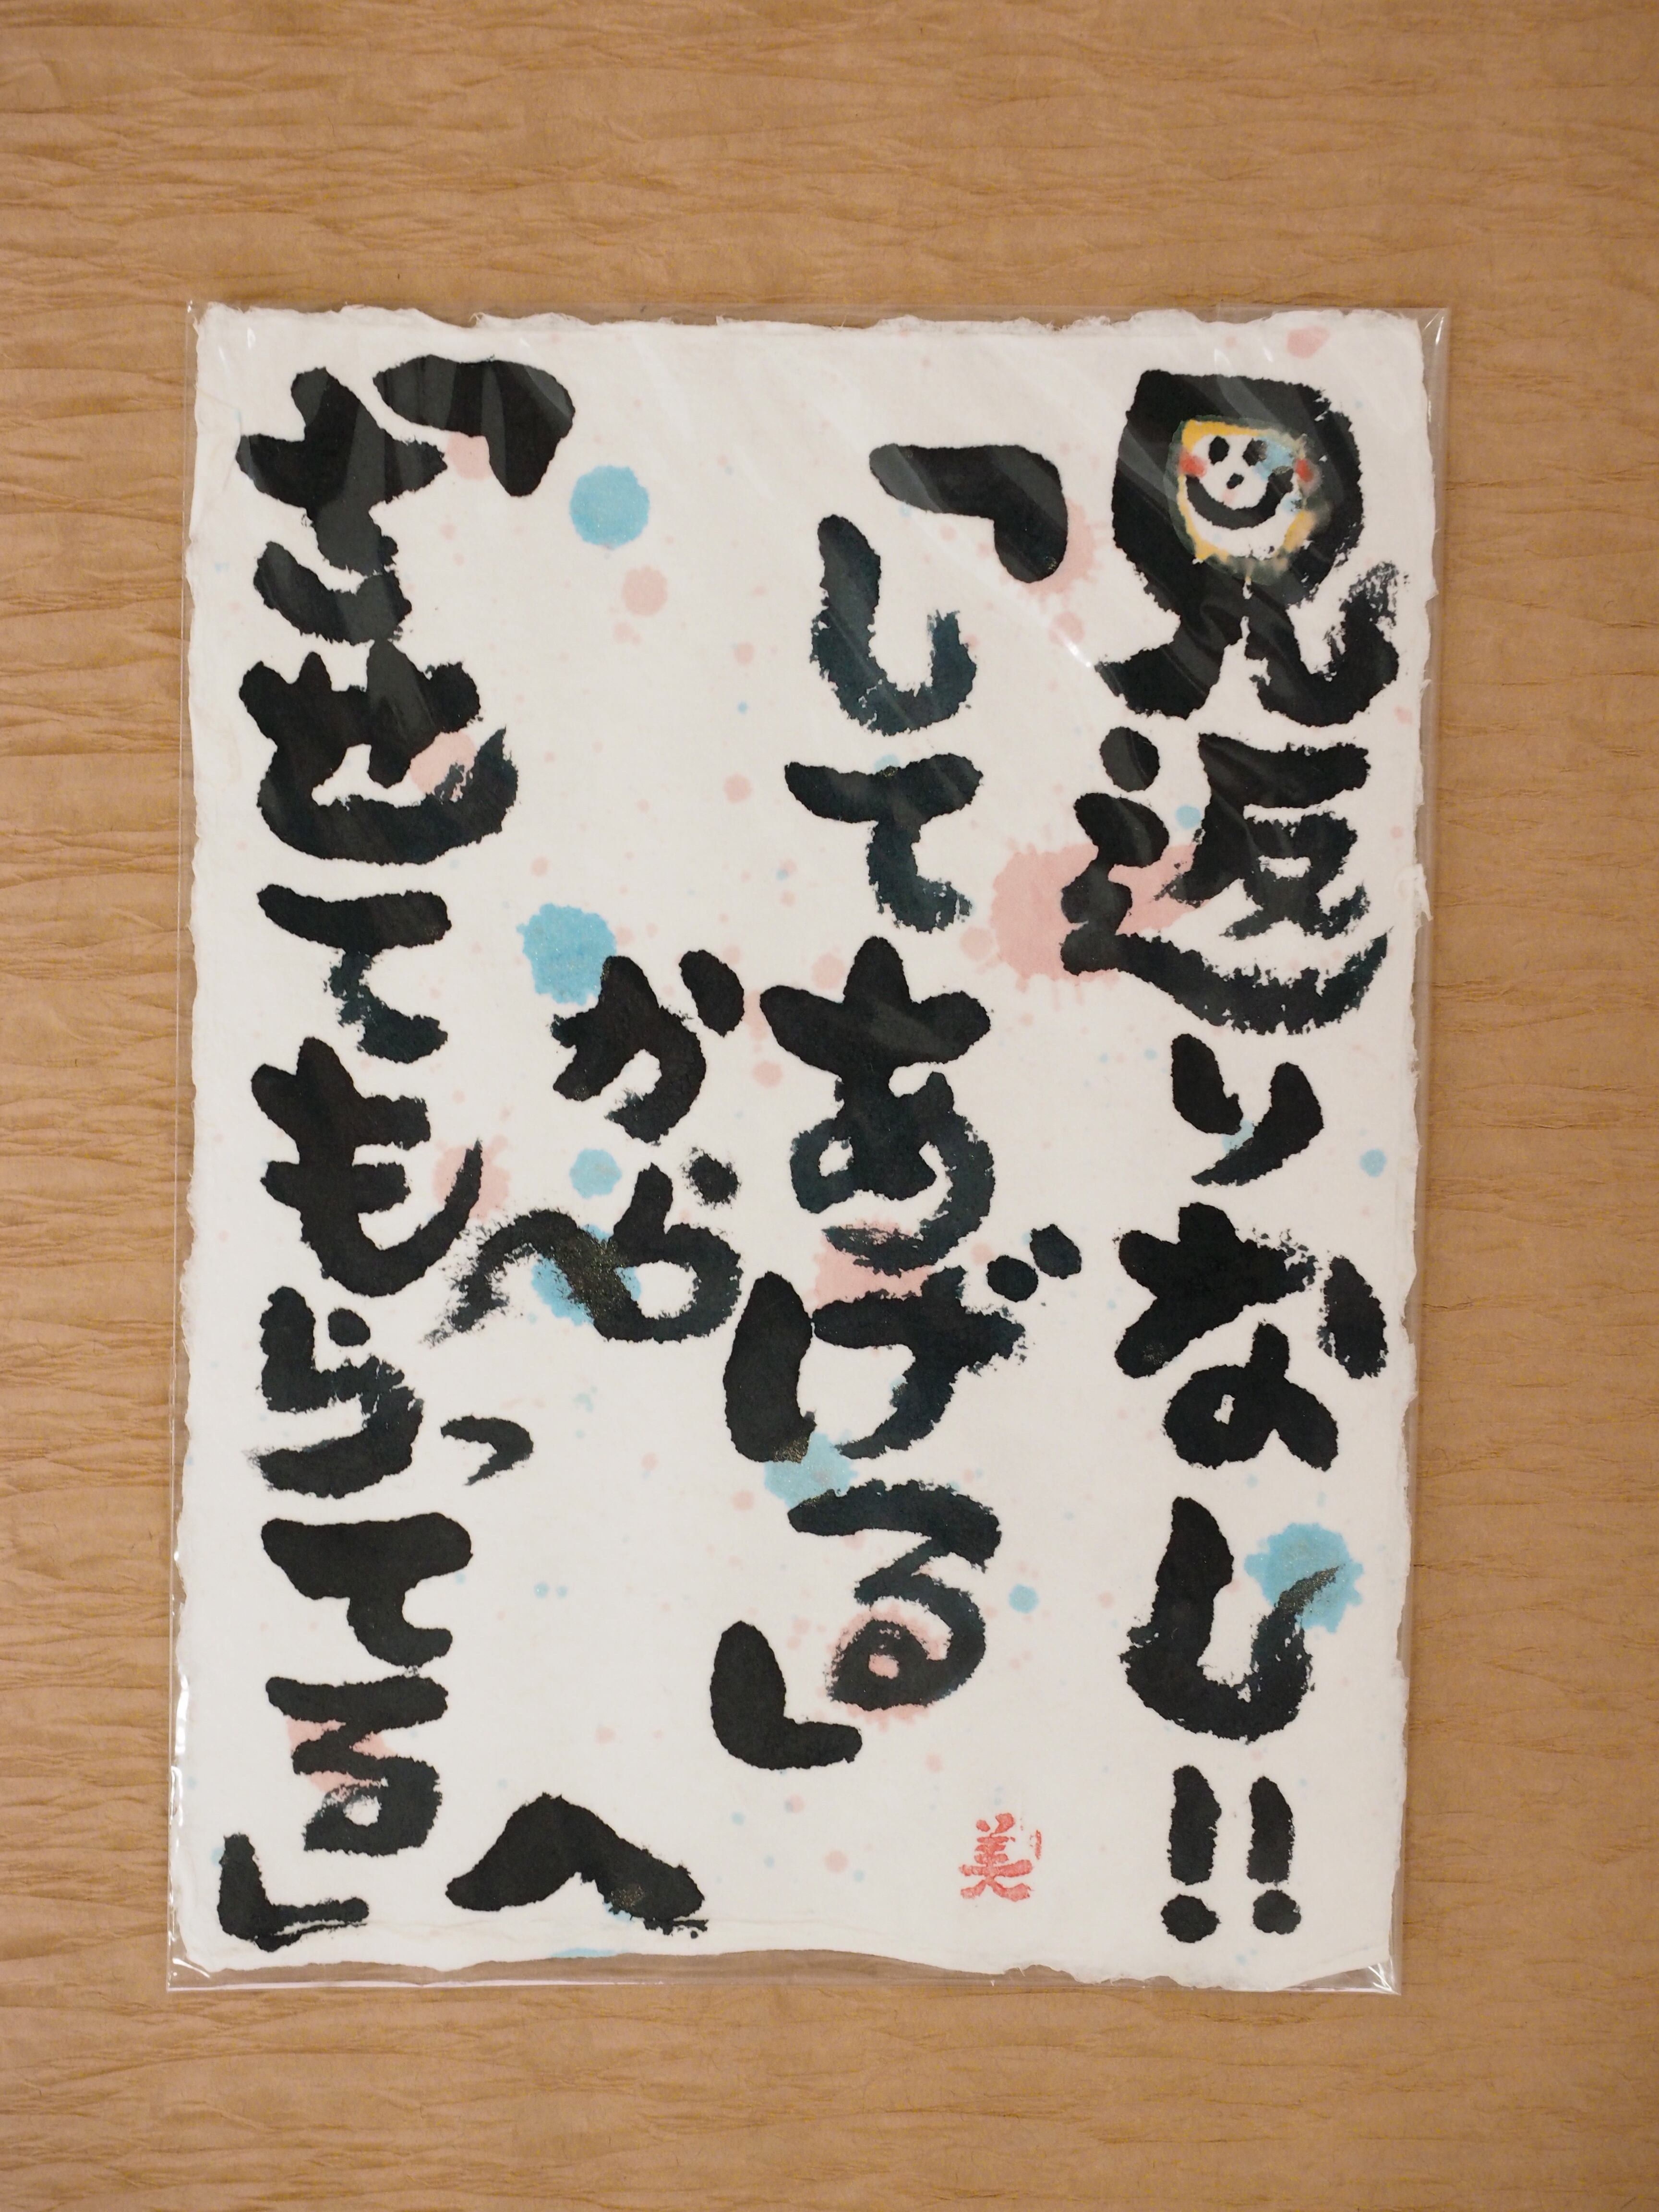 見返りなし!!
「してあげる」
から
へ
「させてもらってる」
美